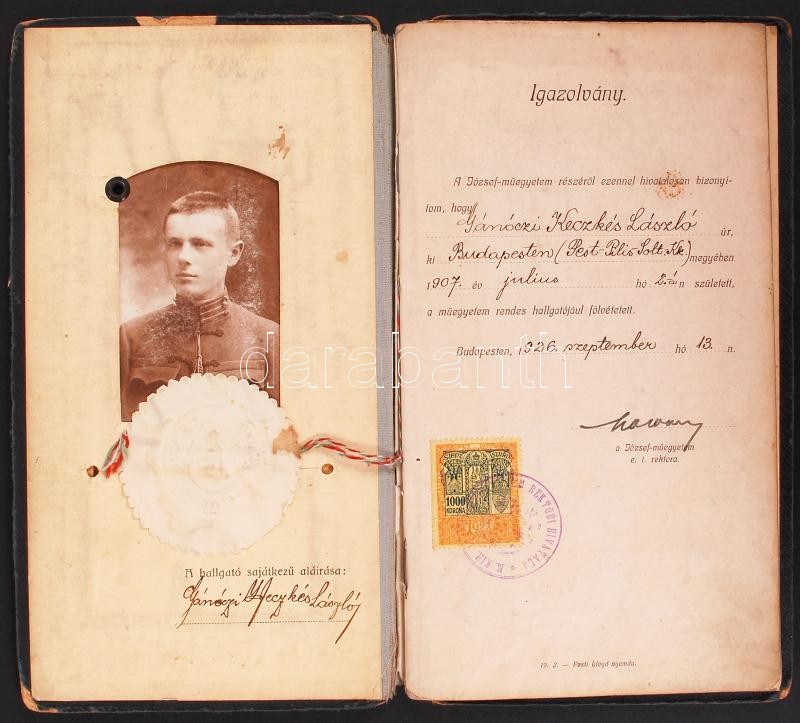 A hallgató sajátkezű aláirása:
Gánóczi Keczkés László
Igazolvány.
A József-műegyetem részéről ezennel hivatalosan bizonyi-
tom, hogy Gánóczi Keczkés László úr,
ki Budapesten (Pest-Pilis Solt. Kk.) megyében
1907. év julius hó 2.án született,
a műegyetem rendes hallgatójául fölvétetett.
Budapesten, 1926. szeptember hó 13. n.
a József-műegyetem
e. i. rektora.
1000
KORONA
REKTORI HIVATALA
19. 2. — Pesti Lloyd nyomda.
darabanth